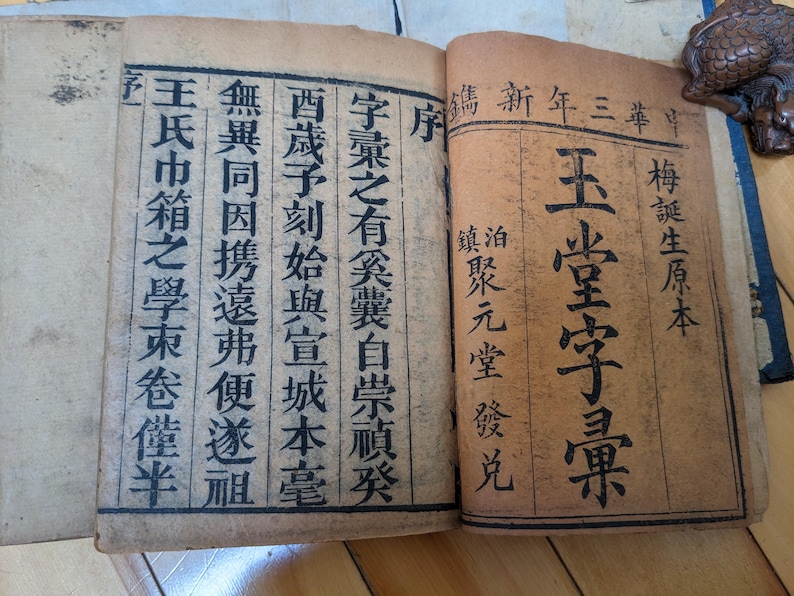 中華三年新鐫
梅誕生原本
玉堂字彙
泊鎮聚元堂發兌
序
字彙之有奚囊自崇禎癸
酉歲予刻始與宣城本毫
無異同因携遠弗便遂祖
王氏巾箱之學束卷僅半
序一